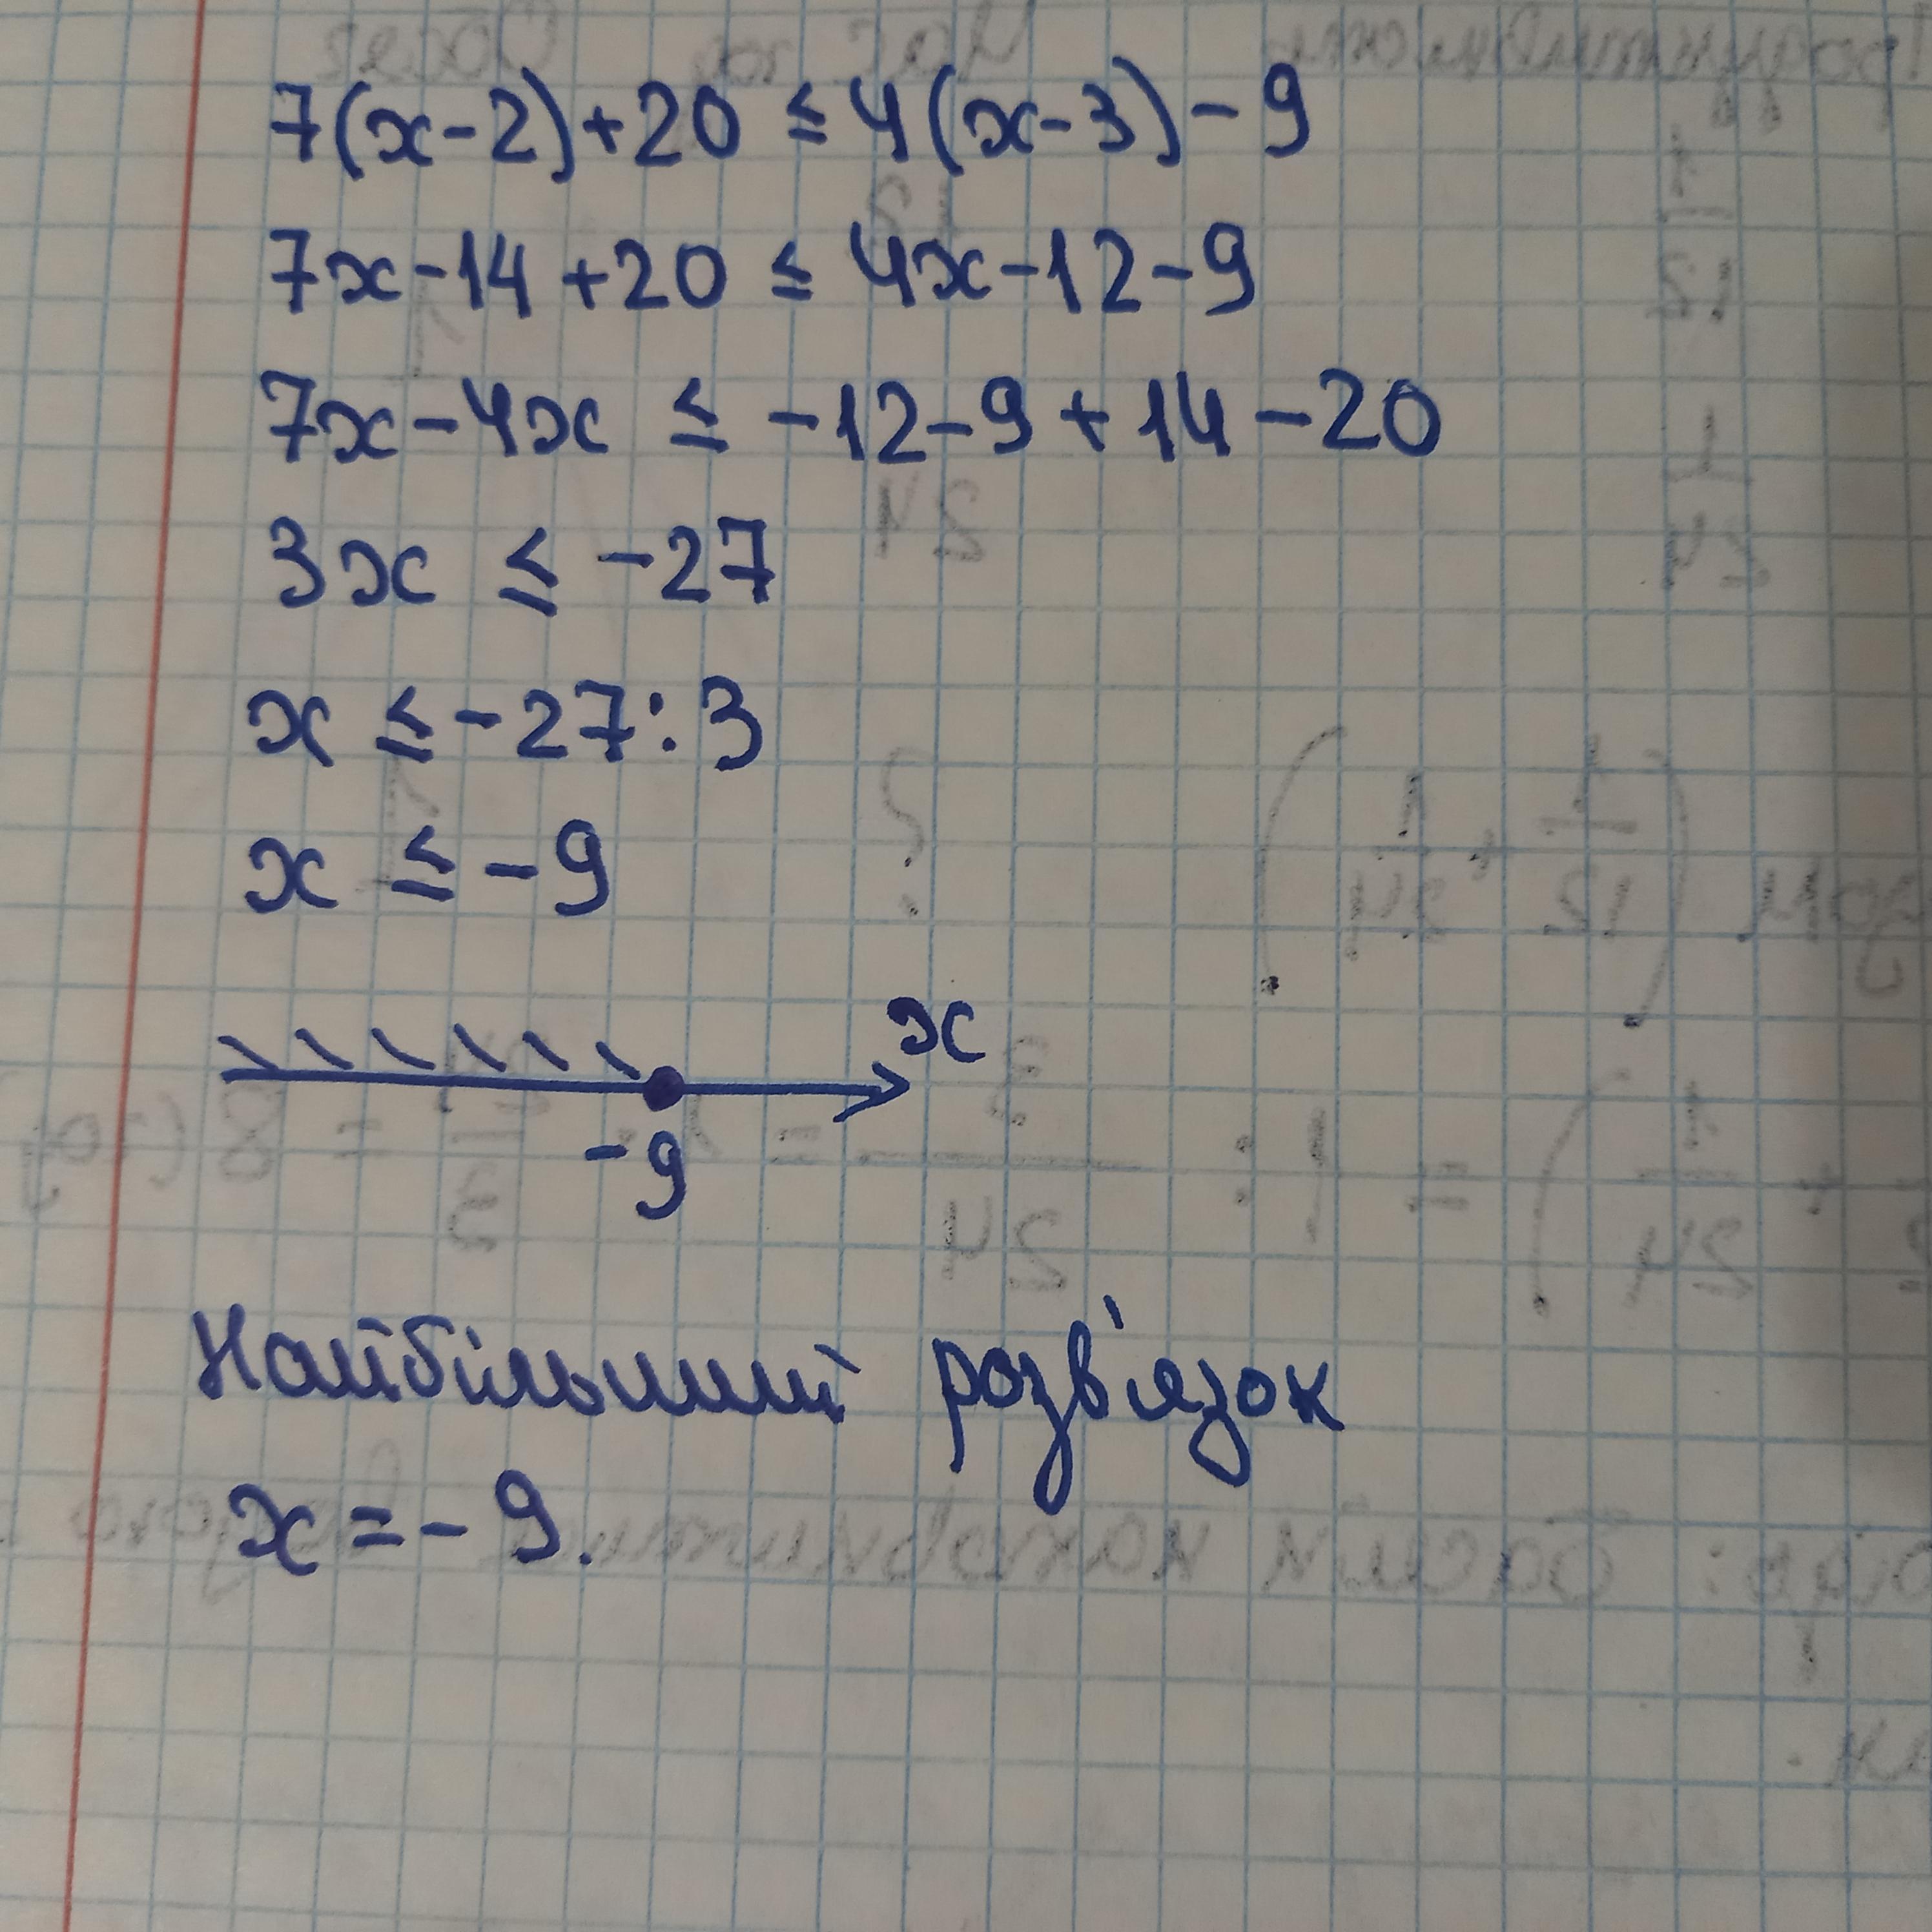 7(x-2)+20 ≤ 4(x-3)-9
7x-14+20 ≤ 4x-12-9
7x-4x ≤ -12-9+14-20
3x ≤ -27
x ≤ -27:3
x ≤ -9
x
-9
Найбільший розв'язок
x=-9.